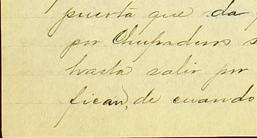 puerta que da
por Chupaderos s
hasta salir por
fican, de cuando